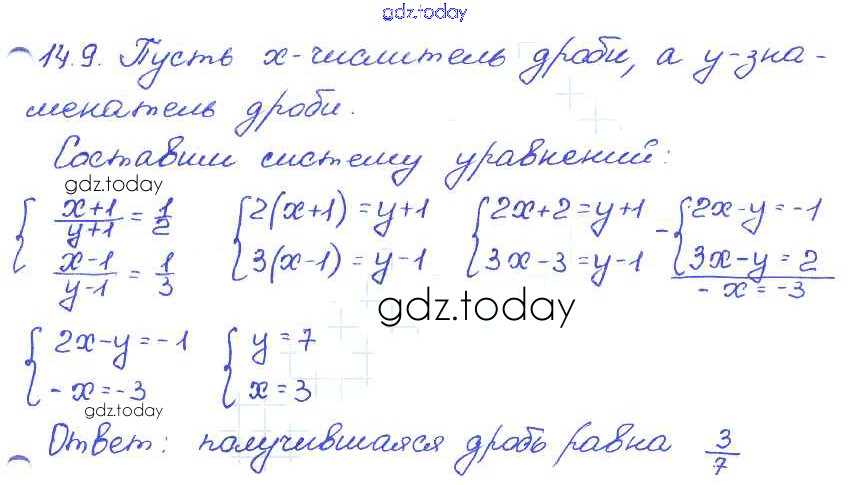 gdz.today
14.9. Пусть x-числитель дроби, а y-зна-
менатель дроби.
Составим систему уравнений:
gdz.today
{ (x+1)/(y+1) = 1/2 { 2(x+1) = y+1 { 2x+2 = y+1 - { 2x-y = -1
(x-1)/(y-1) = 1/3 3(x-1) = y-1 3x-3 = y-1 3x-y = 2
-x = -3
gdz.today
{ 2x-y = -1 { y = 7
-x = -3 x = 3
gdz.today
Ответ: получившаяся дробь равна 3/7